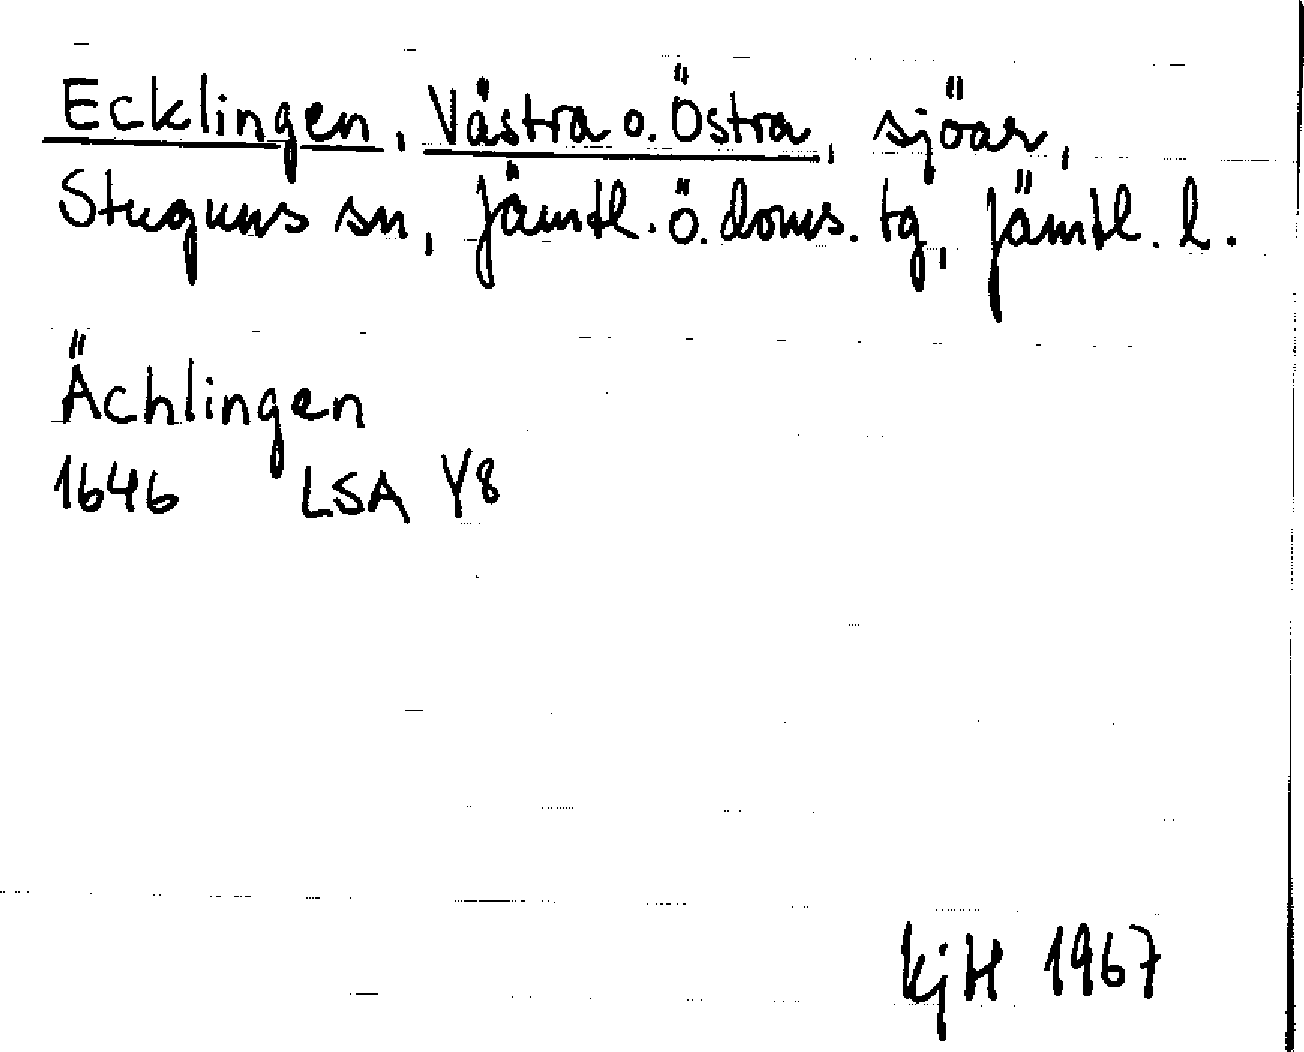 Ecklingen, Västra o. Östra, sjöar,
Stuguns sn, Jämtl. ö. doms. tg, Jämtl. l.
Ächlingen
1646 LSA Y8
KjH 1967